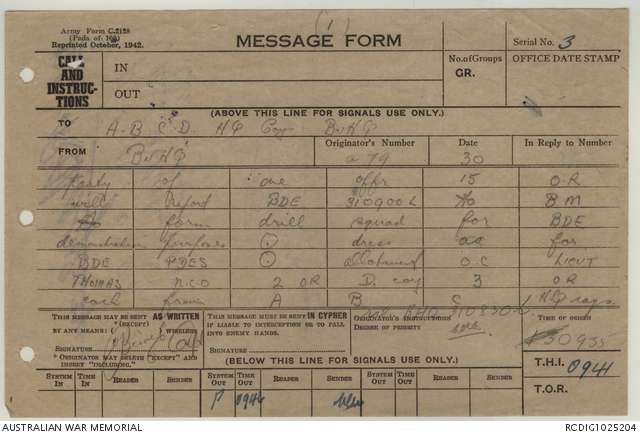 (1)
Army Form C.2128
(Pads of 100)
Reprinted October, 1942.
MESSAGE FORM
Serial No. 3
CALL AND INSTRUCTIONS
IN
OUT
No. of Groups
GR.
OFFICE DATE STAMP
(ABOVE THIS LINE FOR SIGNALS USE ONLY.)
TO A-B C D HQ Coy BnHQ
FROM BnHQ
Originator's Number
Date
In Reply to Number
a 79 30
Party of one offr 15 O.R
will report BDE 310900L to BM
to form drill squad for BDE
demonstration purposes . dress as for
BDE PDES . O.C LIEUT
THOMAS NCO 2 OR D. coy 3 OR
each from A B C
THIS MESSAGE MAY BE SENT AS WRITTEN
(EXCEPT)
BY ANY MEANS WIRELESS
SIGNATURE
* ORIGINATOR MAY DELETE "EXCEPT" AND INSERT "INCLUDING."
THIS MESSAGE MUST BE SENT IN CYPHER
IF LIABLE TO INTERCEPTION OR TO FALL INTO ENEMY HANDS.
SIGNATURE
ORIGINATOR'S INSTRUCTIONS
DEGREE OF PRIORITY
TIME OF ORIGIN
30935
(BELOW THIS LINE FOR SIGNALS USE ONLY.)
T.H.I. 0941
T.O.R.
SYSTEM IN TIME IN READER SENDER SYSTEM OUT TIME OUT READER SENDER SYSTEM OUT TIME OUT READER SENDER
P 0946
AUSTRALIAN WAR MEMORIAL
RCDIG1025204